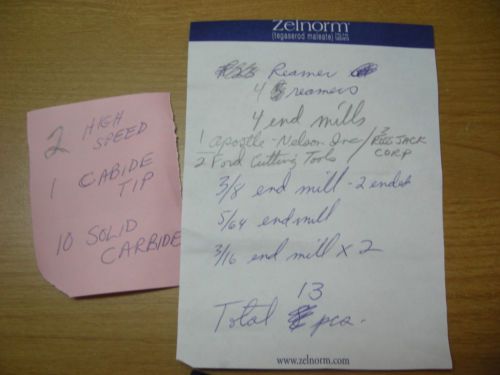 2 HIGH
SPEED
1 CABIDE
TIP
10 SOLID
CARBIDE
Zelnorm®
(tegaserod maleate)
Reamer
4 reamers
4 end mills
1 Apogtle-Nelson Inc/
2 Ford Cutting Tools
3 JACK
CORP
3/8 end mill - 2 ended
5/64 end mill
3/16 end mill x 2
13
Total pcs.
www.zelnorm.com